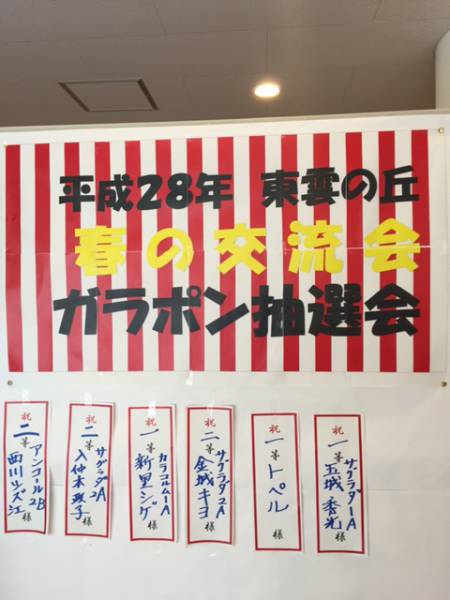 平成28年 東雲の丘
春の交流会
ガラポン抽選会
祝 一等 サグラダ1A 玉城 秀光 様
祝 一等 トペル 様
祝 二等 サグラダ2A 金城 キヨ 様
祝 一等 カラコルム1A 新里 シゲ 様
祝 二等 サグラダ2A 入仲本 様
祝 二等 アンコール2B 西川 江 様